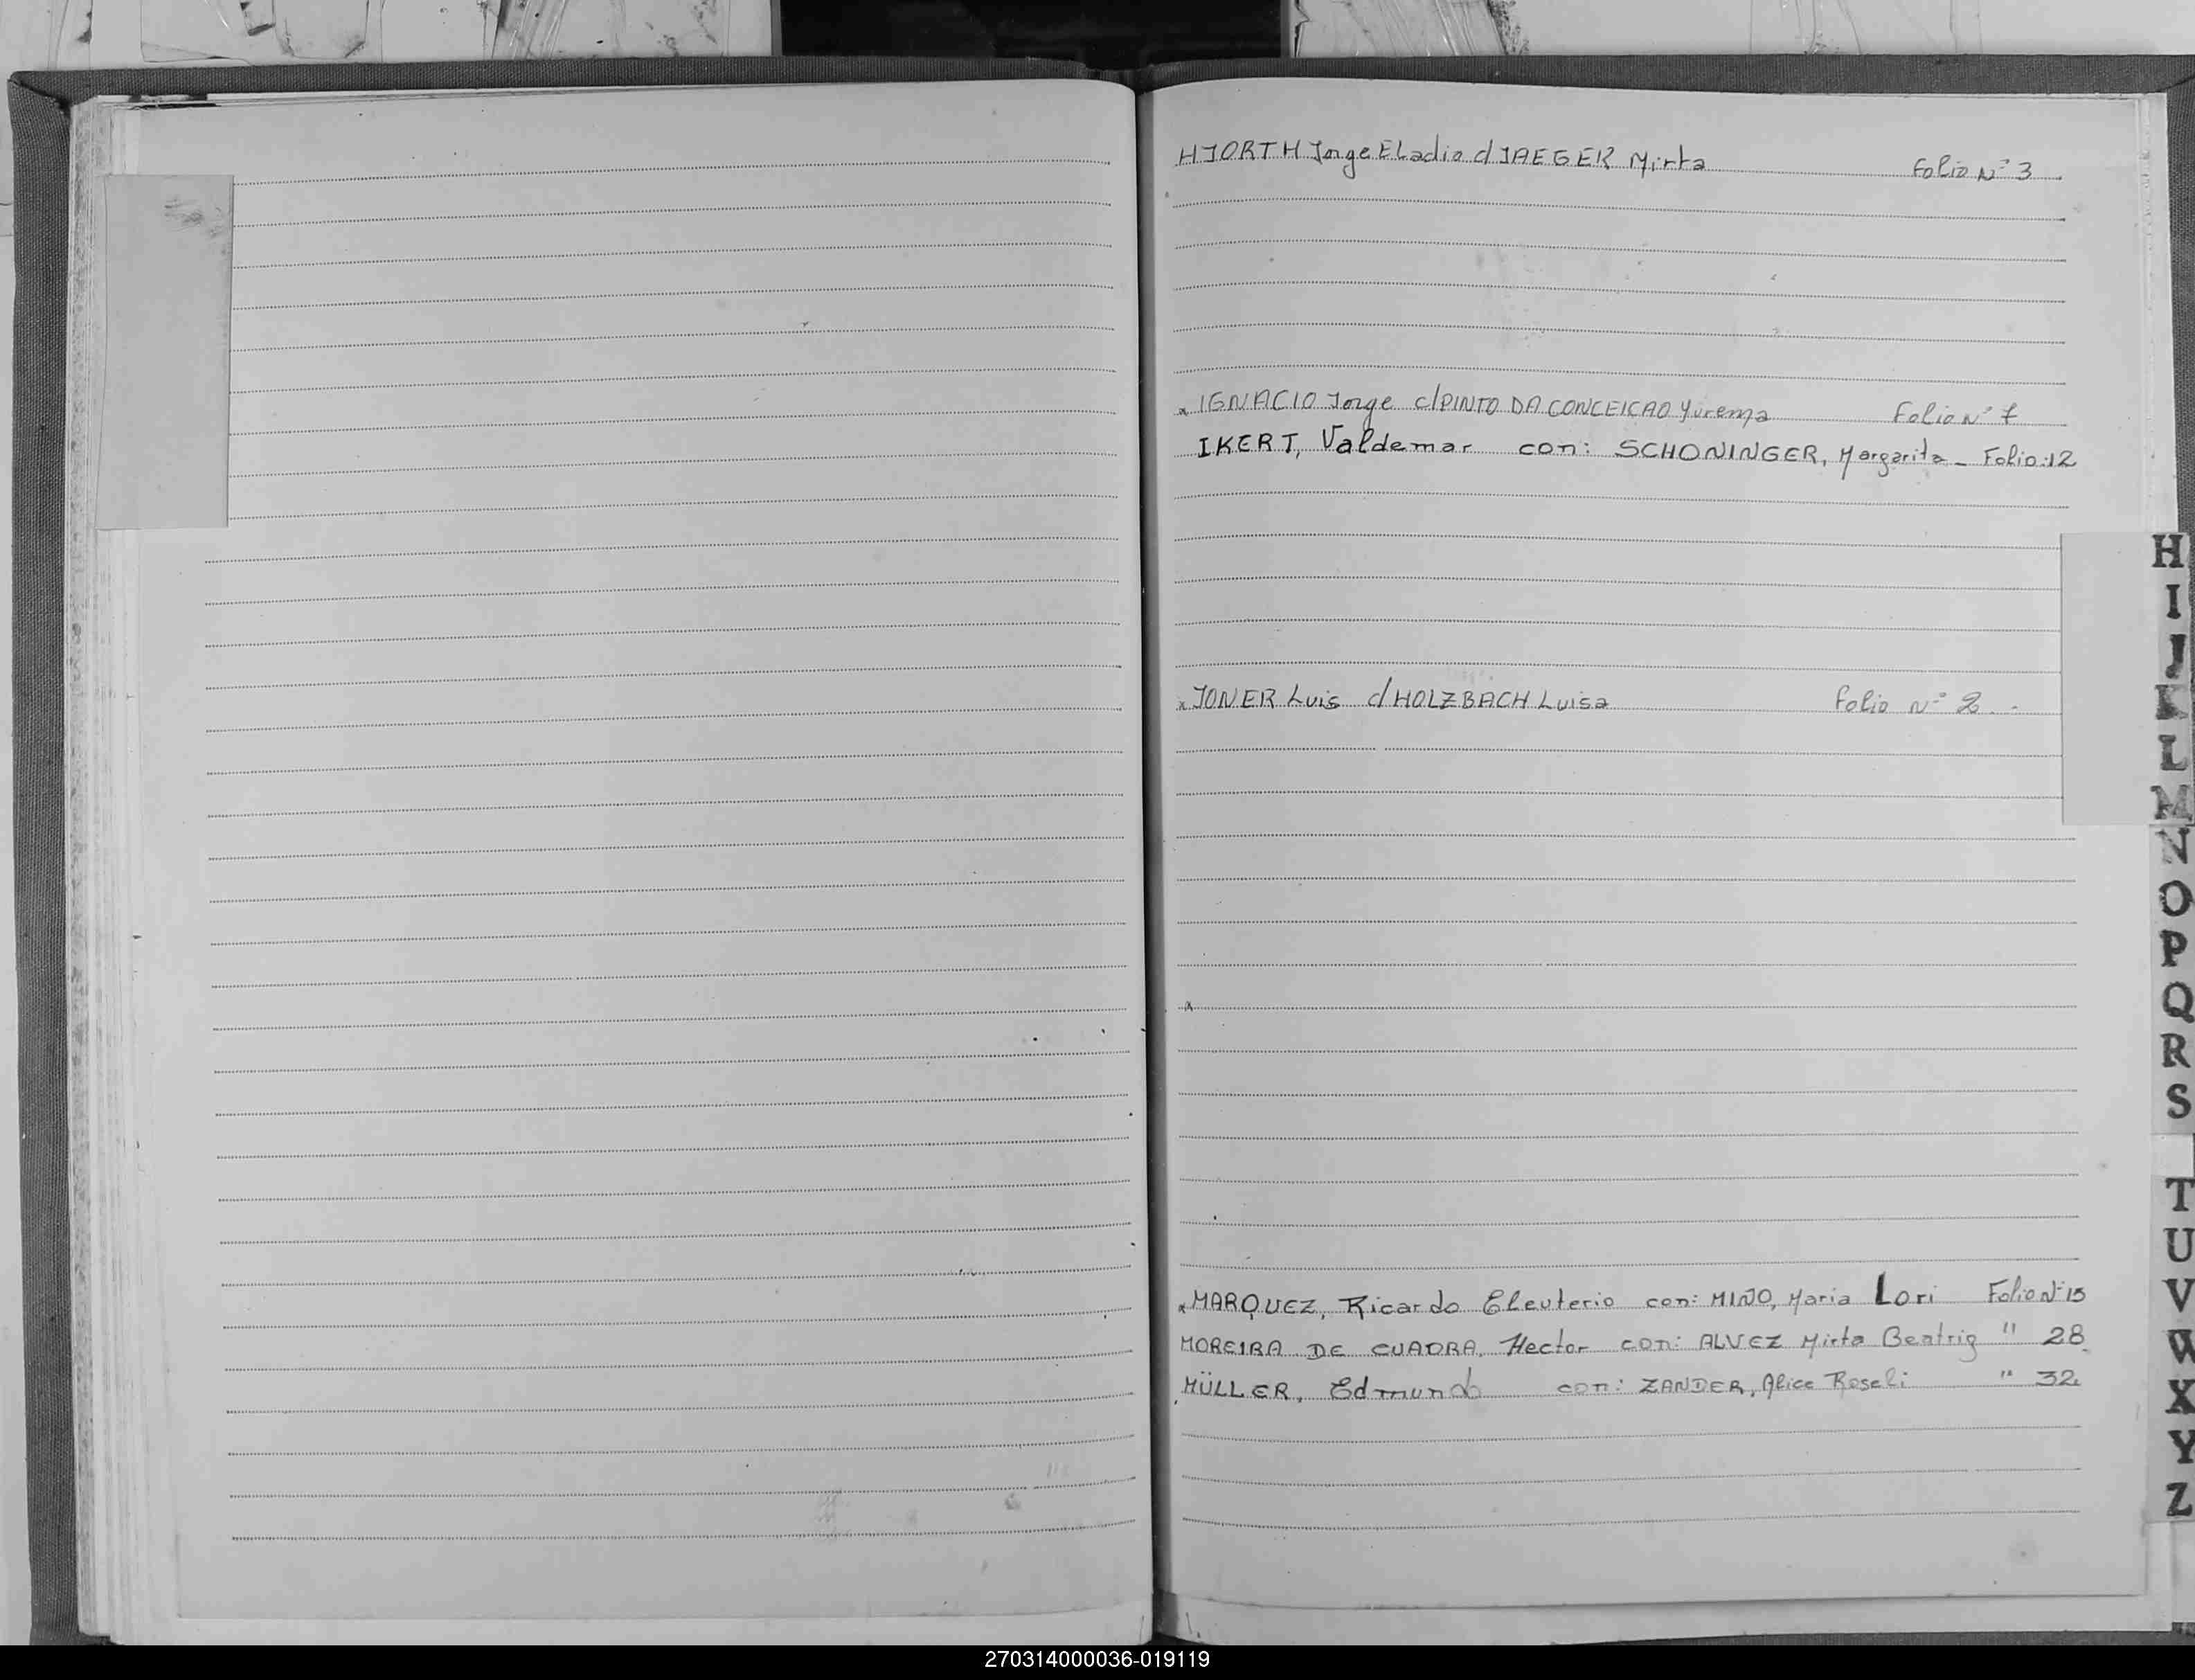 HJORTH Jorge Eladio c/ JAEGER Mirta Folio Nº 3
x IGNACIO Jorge c/PINTO DA CONCEICAO Yurema Folio Nº 7
IKERT, Valdemar con: SCHONINGER, Margarita - Folio:12
H
I
J
K
L
M
N
O
P
Q
R
S
T
U
V
W
X
Y
Z
x JONER Luis c/ HOLZBACH Luisa Folio Nº 2 . -
x
x MARQUEZ, Ricardo Eleuterio con: MIÑO, Maria Lori Folio Nº 15
MOREIRA DE CUADRA, Hector con: ALVEZ Mirta Beatriz " 28.
MÜLLER, Edmundo con: ZANDER, Alice Roseli " 32.
270314000036-019119